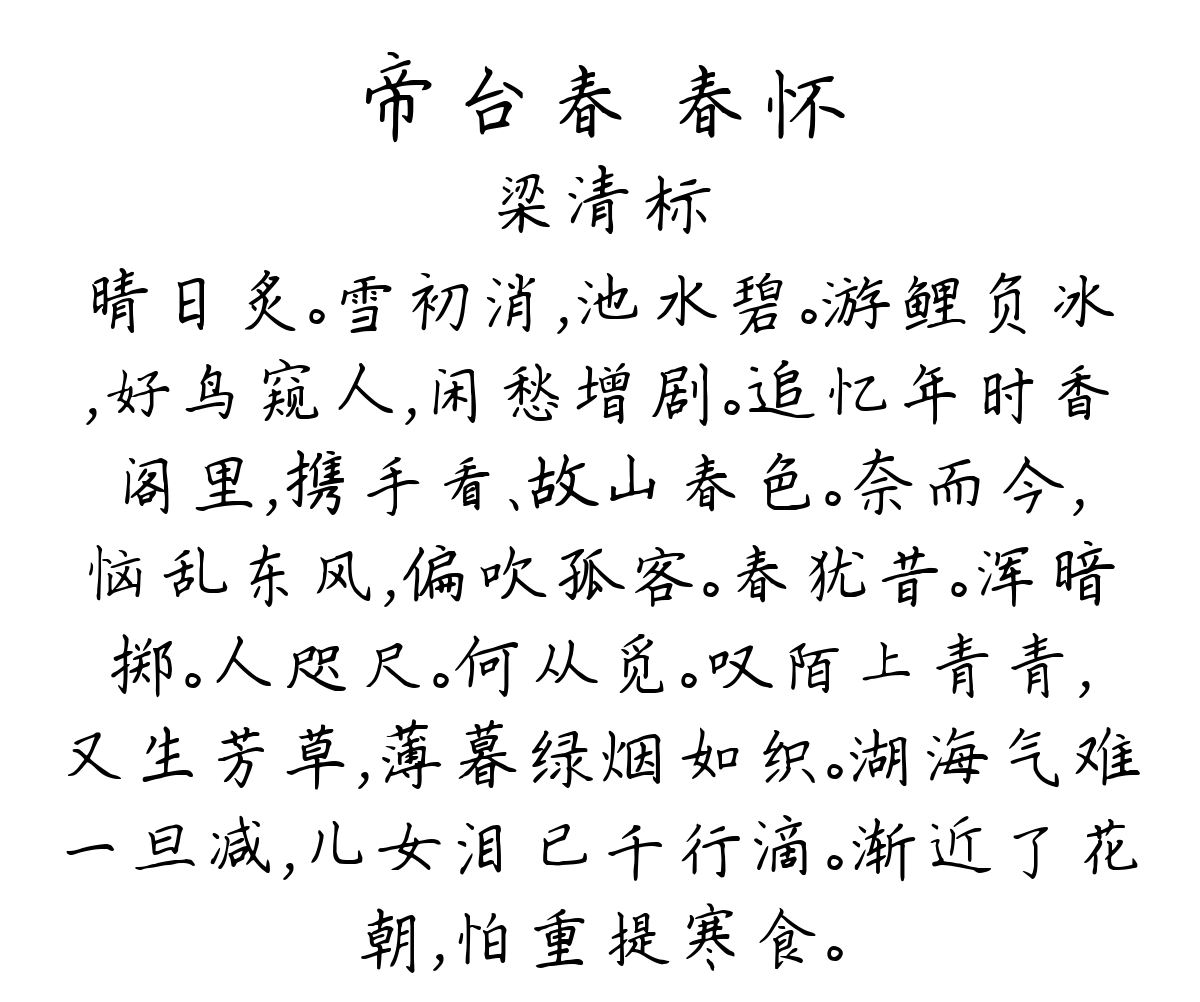 帝台春 春怀
梁清标
晴日炙。雪初消,池水碧。游鲤负冰
,好鸟窥人,闲愁增剧。追忆年时香
阁里,携手看、故山春色。奈而今,
恼乱东风,偏吹孤客。春犹昔。浑暗
掷。人咫尺。何从觅。叹陌上青青,
又生芳草,薄暮绿烟如织。湖海气难
一旦减,儿女泪已千行滴。渐近了花
朝,怕重提寒食。